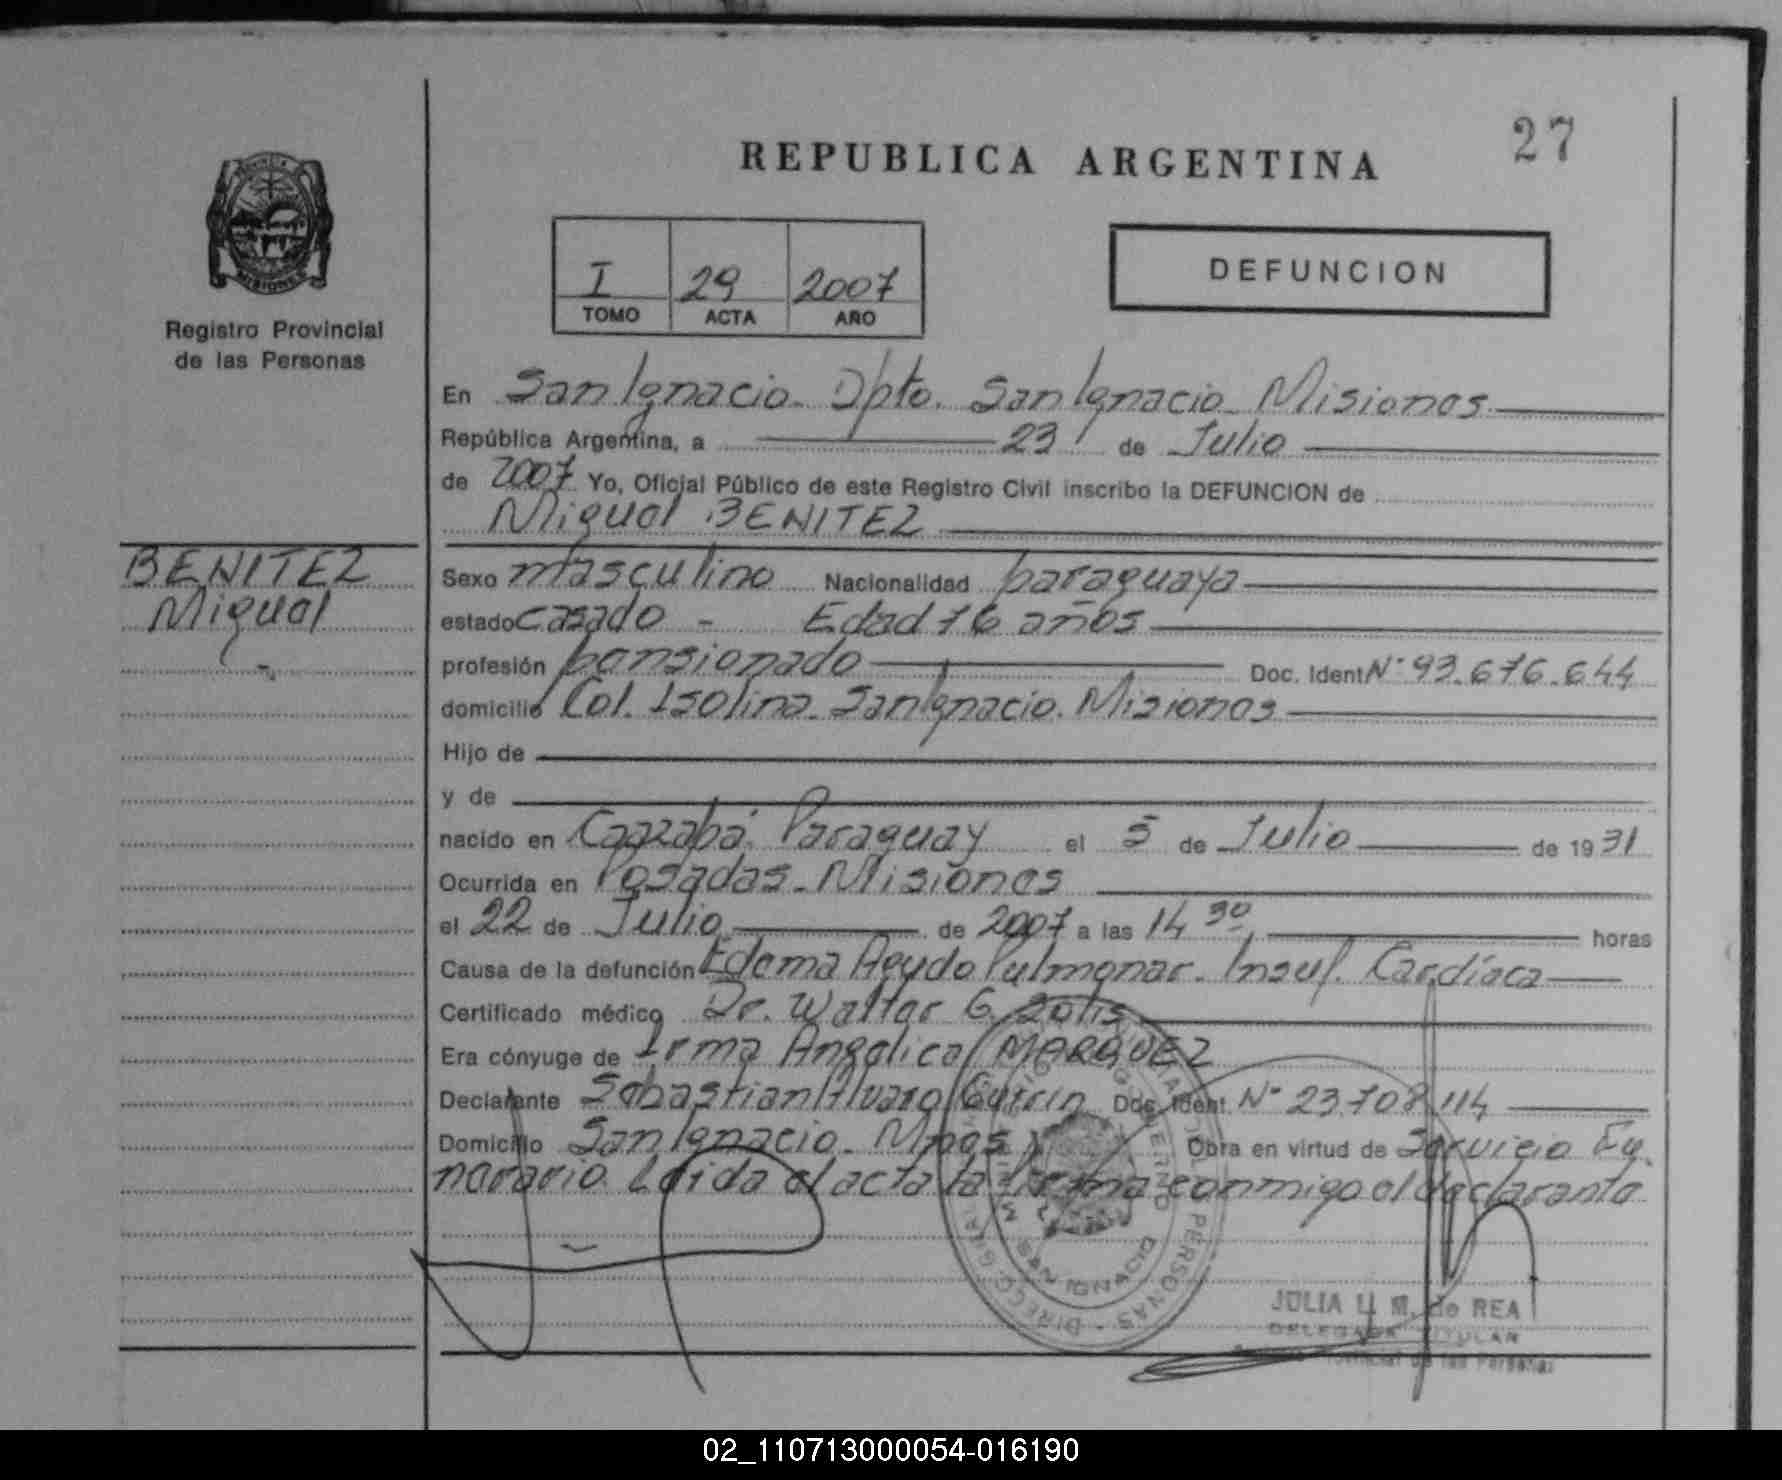 27
REPUBLICA ARGENTINA
Registro Provincial
de las Personas
I 29 2007
TOMO ACTA AÑO
DEFUNCION
En San Ignacio. Dpto. San Ignacio. Misiones
República Argentina, a 23 de Julio
de 2007 Yo, Oficial Público de este Registro Civil inscribo la DEFUNCION de
Miguel BENITEZ
BENITEZ
Miguel
Sexo masculino Nacionalidad paraguaya
estado casado - Edad 76 años
profesión pensionado Doc. Ident Nº 93.676.644
domicilio Col. Isolina. San Ignacio. Misiones
Hijo de
y de
nacido en Caazapá. Paraguay el 5 de Julio de 1931
Ocurrida en Posadas. Misiones
el 22 de Julio de 2007 a las 14 30 horas
Causa de la defunción Edema Agudo Pulmonar. Insuf. Cardíaca
Certificado médico Dr. Walter G. Solis
Era cónyuge de Irma Angelica MARQUEZ
Declarante Sebastian Alvaro Doc. Ident Nº 23.708.114
Domicilio San Ignacio. Mnes Obra en virtud de Servicio Fu.
nerario. Leida el acta la firma conmigo el declarante
SAN IGNACIO
JULIA L. M. de REA
DELEGADA TITULAR
Provincial de las Personas
02_110713000054-016190